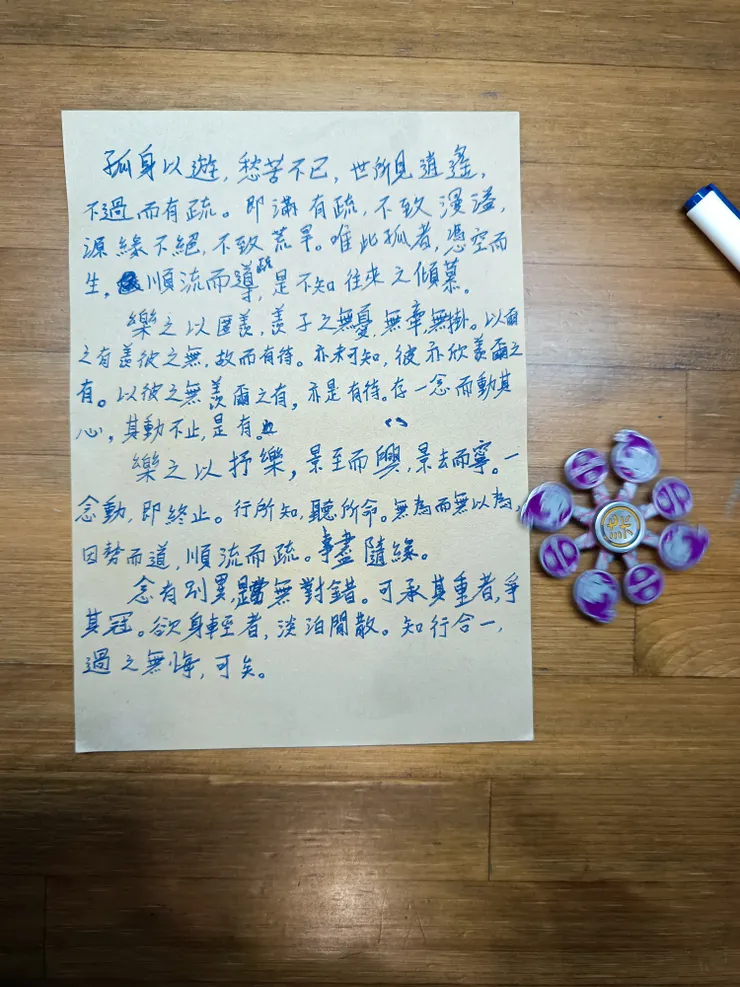 孤身以遊，愁苦不已，世所見逍遙，
不過而有疏。即滿有疏，不致漫溢，
源緣不絕，不致荒旱。唯此孤者，憑空而
生，順流而導，故是不知往來之傾慕。
樂之以匿羨，羨子之無憂，無牽無掛。以爾
之有羨彼之無，故而有待。亦未可知，彼亦欣羨爾之
有。以彼之無羨爾之有，亦是有待。存一念而動其
心，其動不止，是有。
樂之以抒樂，景至而興，景去而寧。一
念動，即終止。行所知，聽所命。無為而無以為，
因勢而道，順流而疏。事盡隨緣。
念有別異，無對錯。可承其重者，爭
其冠。欲身輕者，淡泊閒散。知行合一，
過之無悔，可矣。